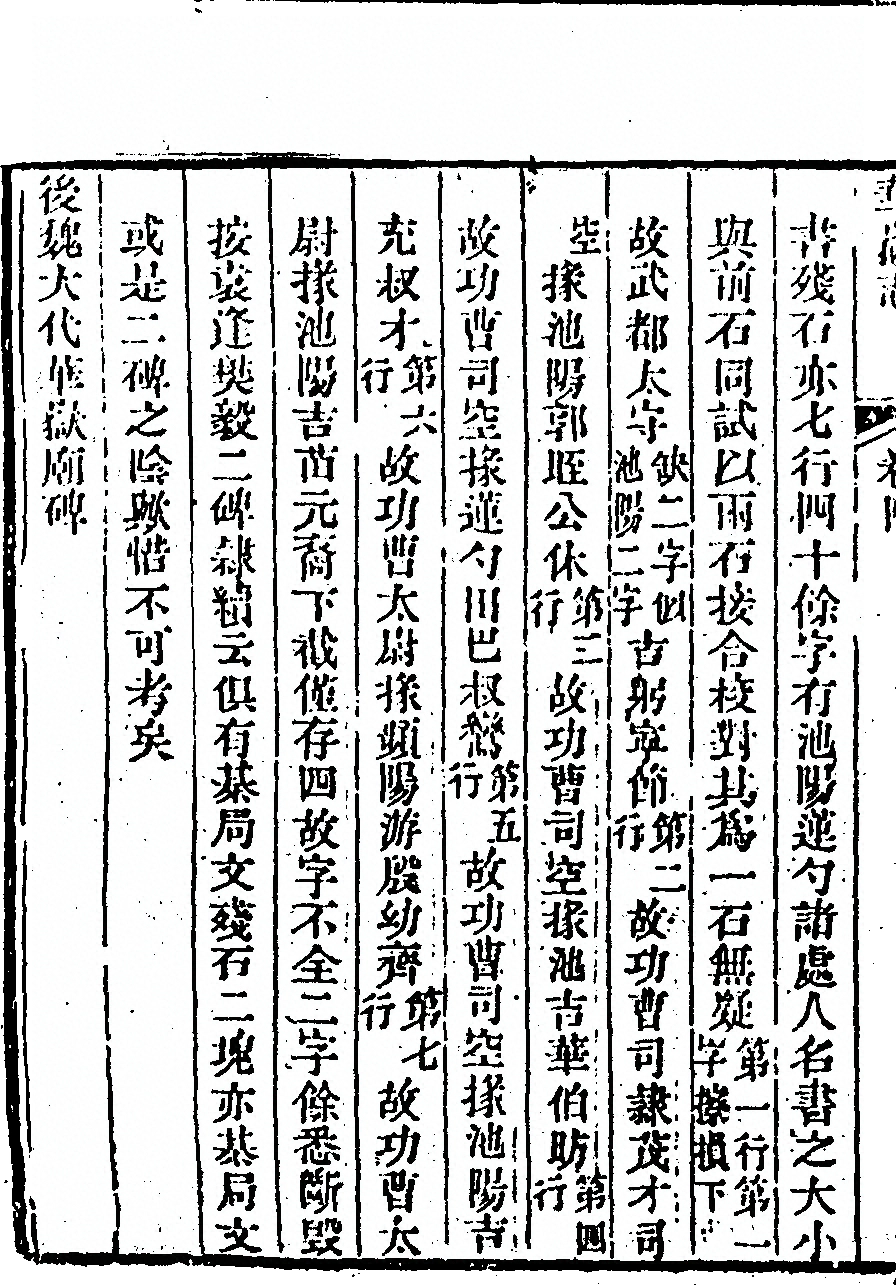 書殘石亦七行四十餘字有池陽蓮勺諸處人名書之大小
與前石同試以兩石接合棱對其為一石無疑第一行第一字擦損下
故武都太守缺二字似池陽二字吉躬寧節第二行故功曹司隸茂才司
空掾池陽郭旺公休第三行故功曹司空掾池吉華伯昉第四行
故功曹司空掾蓮勺田巴叔鸞第五行故功曹司空掾池陽吉
充叔才第六行故功曹太尉掾頻陽游殷幼齊第七行故功曹太
尉掾池陽吉苗元裔下截僅存四故字不全二字餘悉斷毀
按袁逢樊毅二碑隸續云俱有碁局文殘石二塊亦碁局文
或是二碑之陰歟惜不可考矣
後魏大代華嶽廟碑